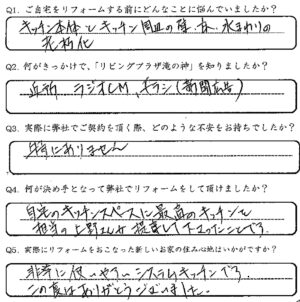 Q1. ご自宅をリフォームする前にどんなことに悩んでいましたか？
キッチン本体とキッチン周皿の壁、床、水まわりの
老朽化
Q2. 何がきっかけで、「リビングプラザ滝の神」を知りましたか？
近所 ラジオCM、チラシ(新聞広告)
Q3. 実際に弊社でご契約を頂く際、どのような不安をお持ちでしたか？
特にありません
Q4. 何が決め手となって弊社でリフォームをして頂けましたか？
自宅のキッチンスペースに最高のキッチンを
担当の上野さんが提案して下さったことです。
Q5. 実際にリフォームをおこなった新しいお家の住み心地はいかがですか？
非常に使いやすいシステムキッチンです。
この度はありがとうございました。